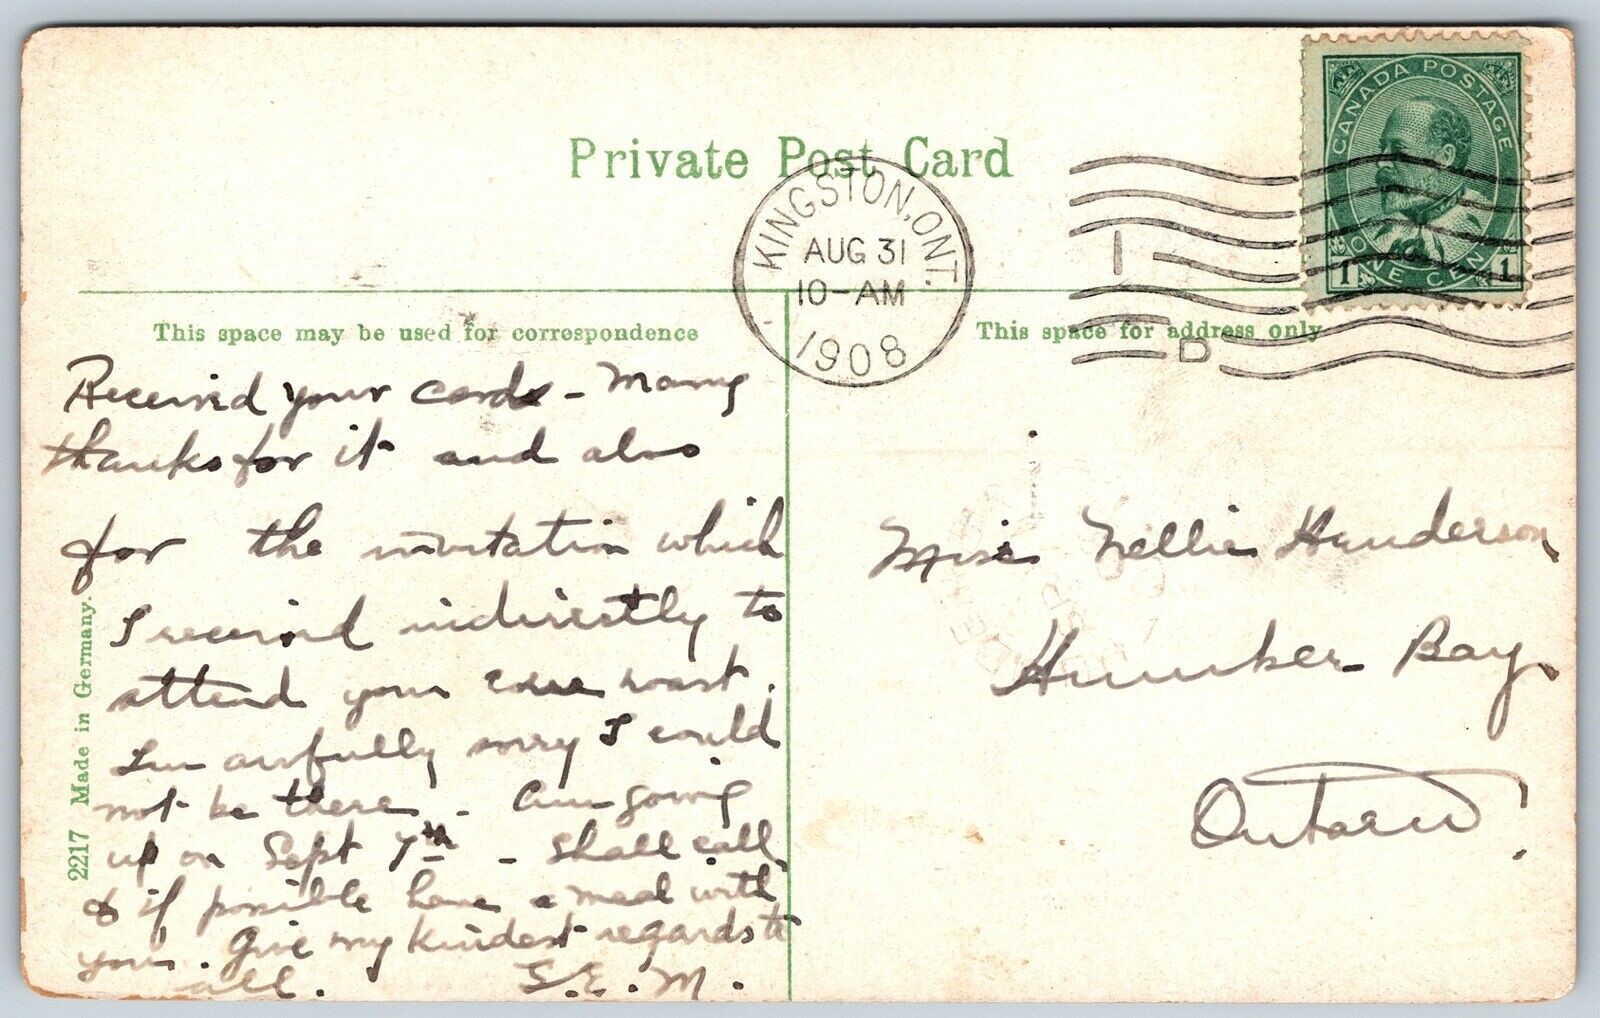 Private Post Card
CANADA POSTAGE
1 ONE CENT 1
KINGSTON, ONT.
AUG 31
10-AM
1908
D
This space may be used for correspondence
This space for address only
Received your cards - Many
thanks for it and also
for the invitation which
I received indirectly to
attend your corn roast.
I'm awfully sorry I could
not be there - Am going
up on Sept 7th - Shall call
& if possible have a meal with
you. Give my kindest regards to
all. S.E.M.
Miss Nellie Henderson,
Humber Bay,
Ontario.
2217 Made in Germany.